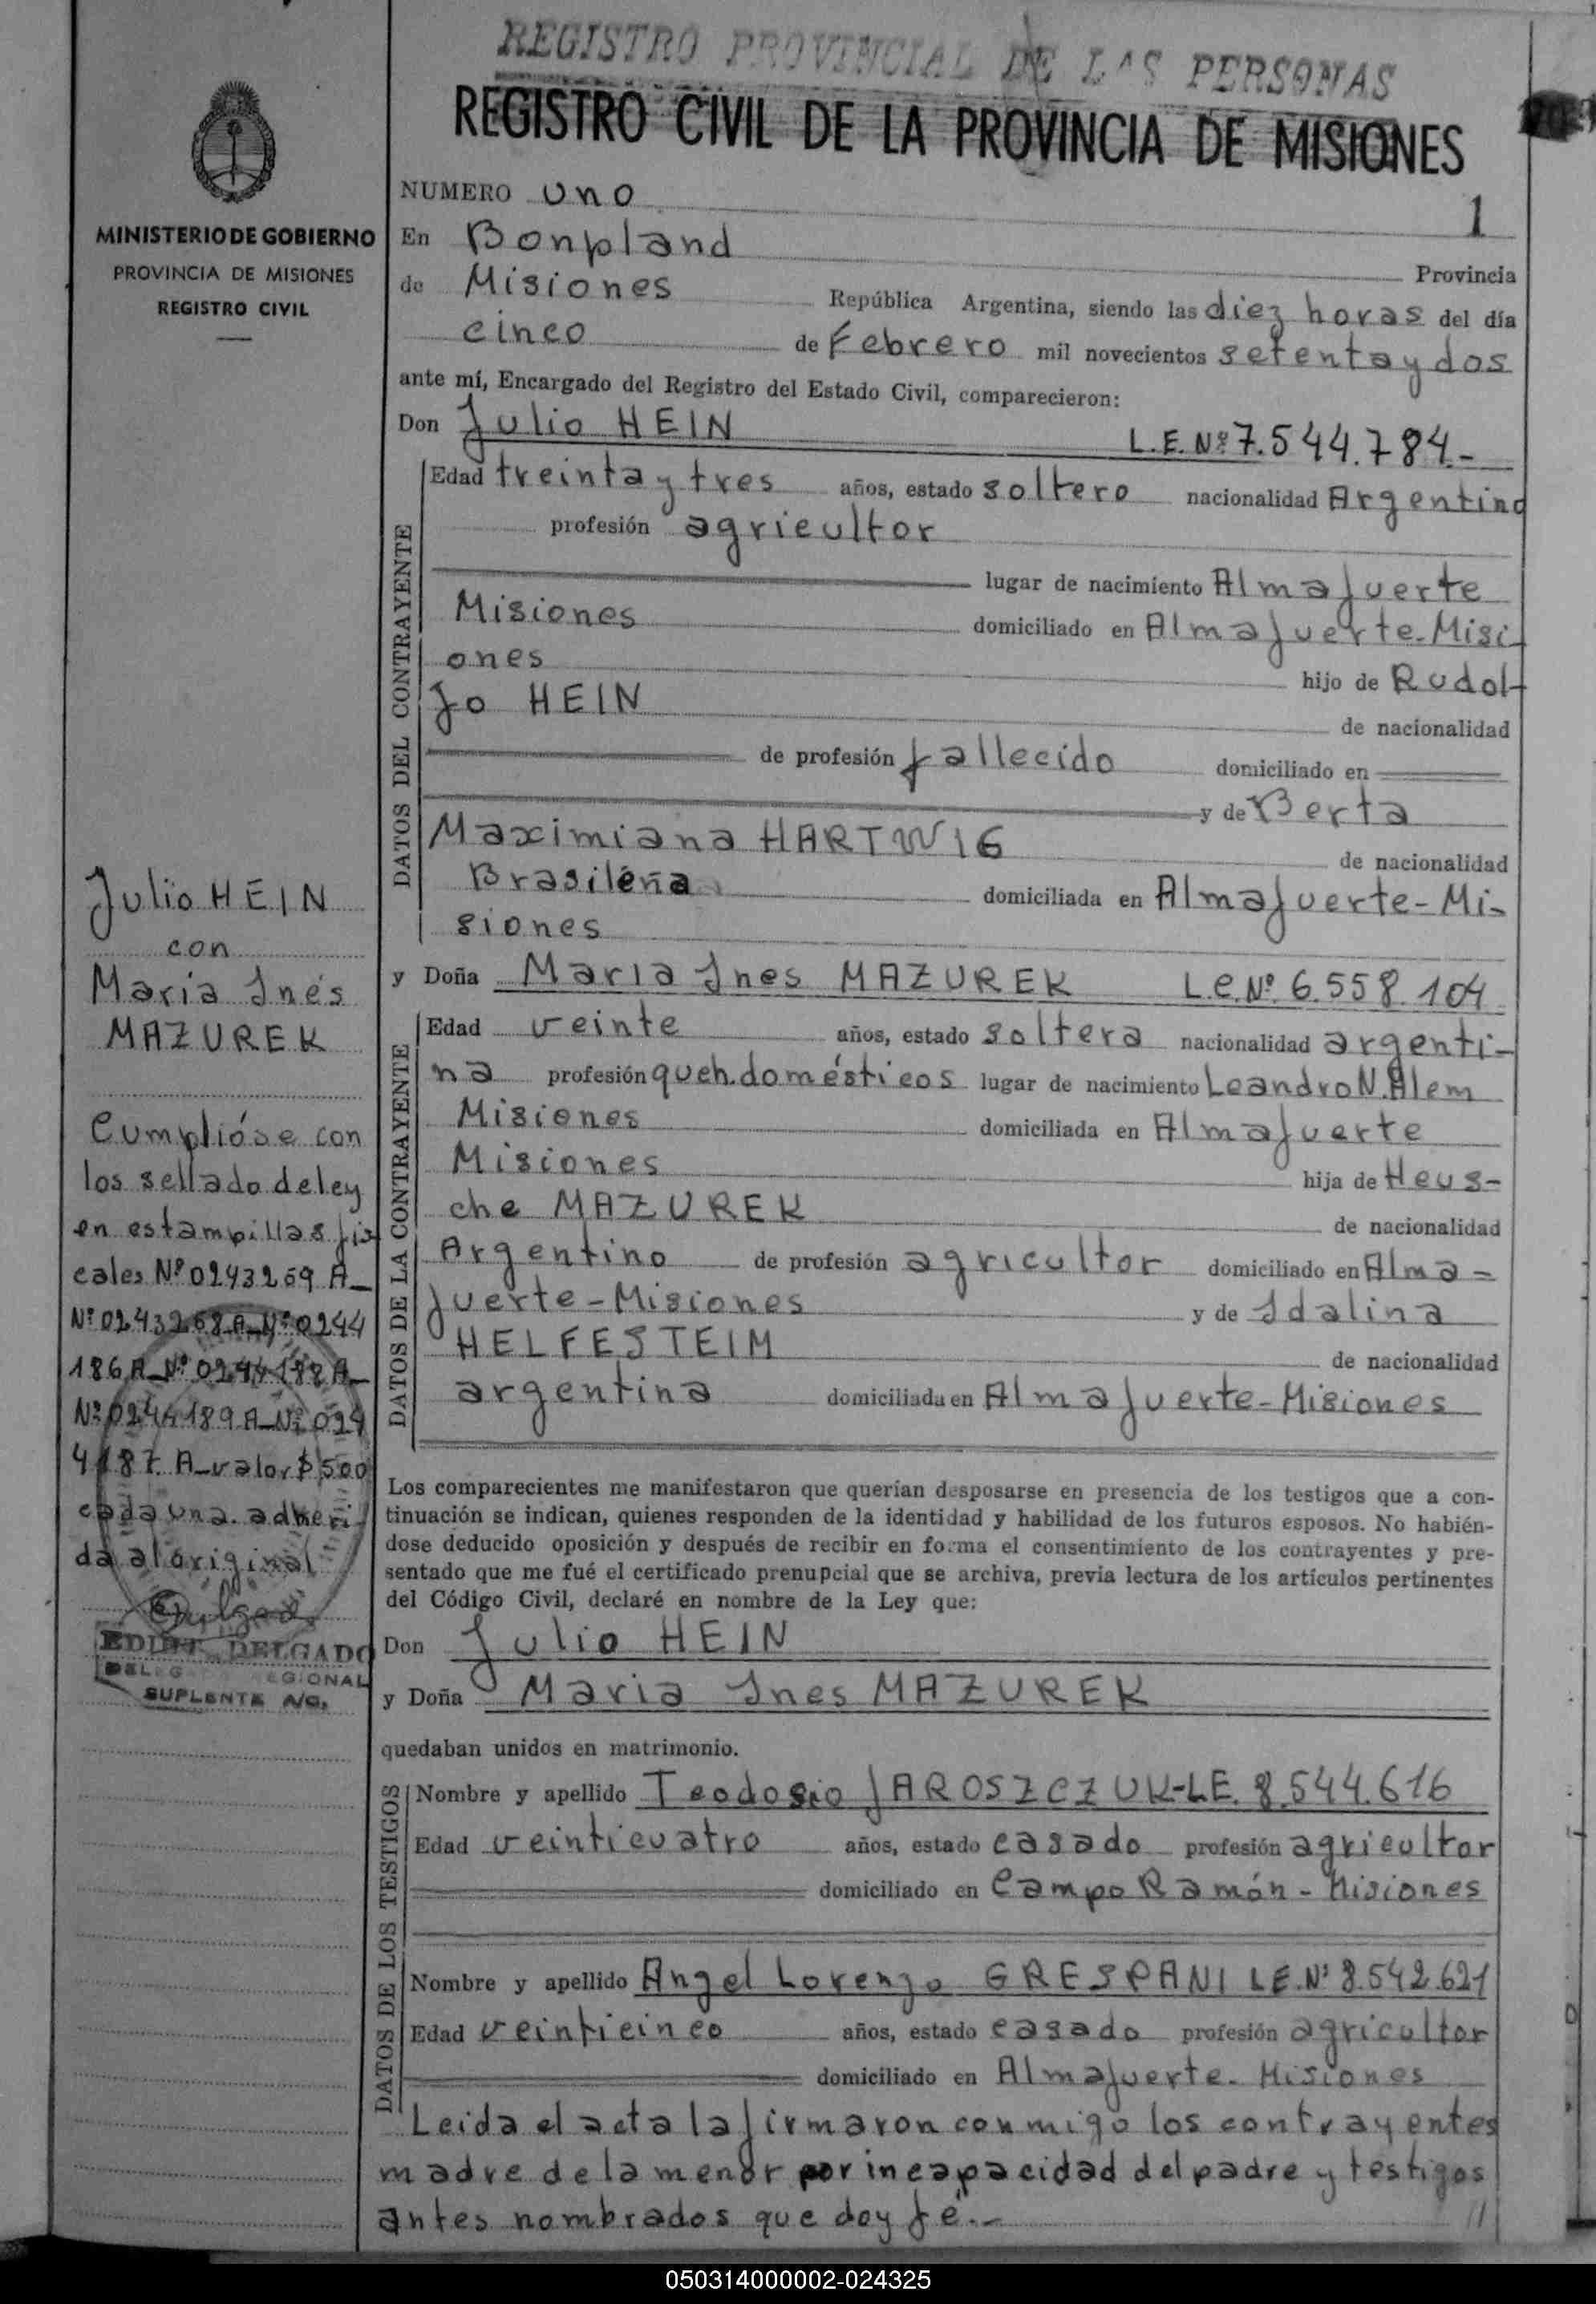 REGISTRO PROVINCIAL DE LAS PERSONAS
REGISTRO CIVIL DE LA PROVINCIA DE MISIONES
MINISTERIO DE GOBIERNO
PROVINCIA DE MISIONES
REGISTRO CIVIL
Julio HEIN
con
Maria Inés
MAZUREK
Cumplióse con
los sellado de ley
en estampillas fis
cales Nº 0243269 A_
Nº 0243268 A_Nº 0244
186 A_Nº 0244188 A_
Nº 0244189 A_Nº 024
4187 A_valor $ 500
cada una adheri
da al original
EDITH DELGADO
SUPLENTE A/C.
NUMERO uno
1
En Bonpland Provincia
de Misiones República Argentina, siendo las diez horas del día
cinco de Febrero mil novecientos setenta y dos
ante mí, Encargado del Registro del Estado Civil, comparecieron:
Don Julio HEIN L.E. Nº 7.544.784.-
DATOS DEL CONTRAYENTE
Edad treinta y tres años, estado soltero nacionalidad Argentino
profesión agricultor
lugar de nacimiento Almafuerte
Misiones domiciliado en Almafuerte-Misi
ones hijo de Rudol-
fo HEIN de nacionalidad
de profesión fallecido domiciliado en
y de Berta
Maximiana HARTWIG de nacionalidad
Brasileña domiciliada en Almafuerte-Mi-
siones
y Doña Maria Ines MAZUREK L.C. Nº 6.558.104
DATOS DE LA CONTRAYENTE
Edad veinte años, estado soltera nacionalidad argenti-
na profesión queh.domésticos lugar de nacimiento Leandro N. Alem
Misiones domiciliada en Almafuerte
Misiones hija de Heus-
che MAZUREK de nacionalidad
Argentino de profesión agricultor domiciliado en Alma-
fuerte-Misiones y de Idalina
HELFESTEIM de nacionalidad
argentina domiciliada en Almafuerte-Misiones
Los comparecientes me manifestaron que querían desposarse en presencia de los testigos que a con-
tinuación se indican, quienes responden de la identidad y habilidad de los futuros esposos. No habién-
dose deducido oposición y después de recibir en forma el consentimiento de los contrayentes y pre-
sentado que me fué el certificado prenupcial que se archiva, previa lectura de los artículos pertinentes
del Código Civil, declaré en nombre de la Ley que:
Don Julio HEIN
y Doña Maria Ines MAZUREK
quedaban unidos en matrimonio.
DATOS DE LOS TESTIGOS
Nombre y apellido Teodosio JAROSZCZUK-L.E. 8.544.616
Edad veinticuatro años, estado casado profesión agricultor
domiciliado en Campo Ramón - Misiones
Nombre y apellido Angel Lorenzo GRESPANI L.E. Nº 8.542.621
Edad veinticinco años, estado casado profesión agricultor
domiciliado en Almafuerte - Misiones
Leida el acta la firmaron conmigo los contrayentes
madre de la menor por incapacidad del padre y testigos
antes nombrados que doy fé.-
050314000002-024325